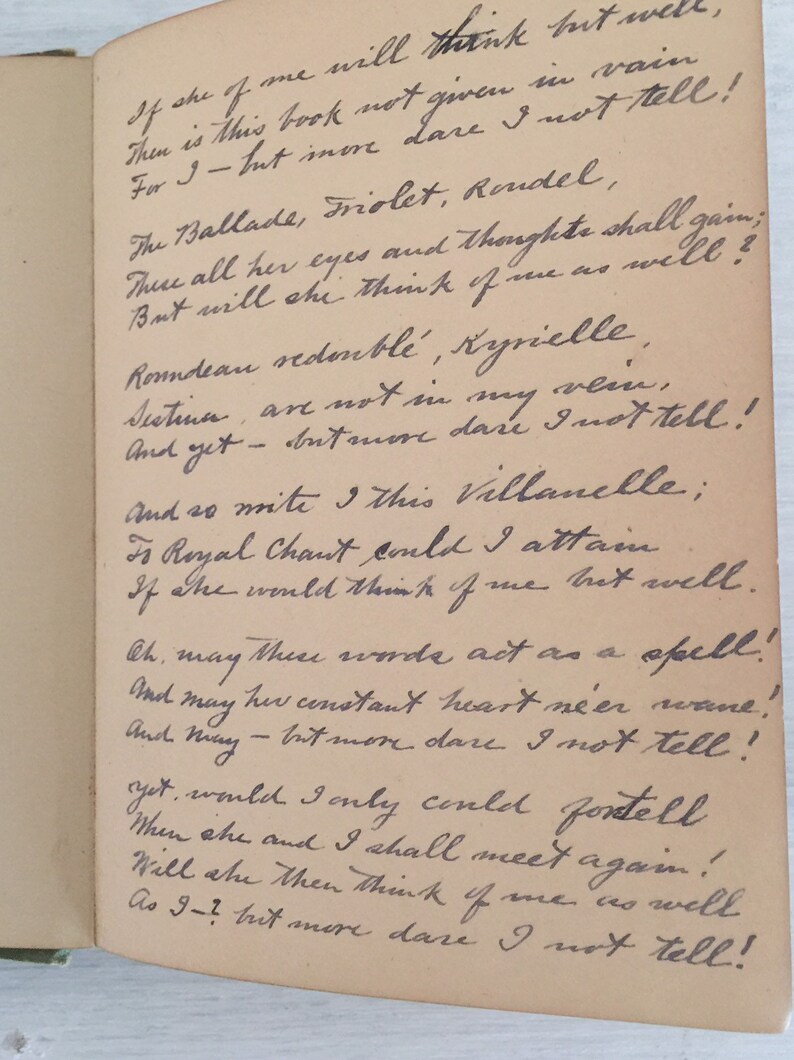 If she of me will think but well,
Then is this book not given in vain
For I – but more dare I not tell!
The Ballade, Triolet, Rondel,
These all her eyes and thoughts shall gain;
But will she think of me as well?
Roundeau redoublé, Kyrielle,
Sestina, are not in my vein,
And yet – but more dare I not tell!
And so write I this Villanelle;
To Royal Chant could I attain
If she would think of me but well.
Oh, may these words act as a spell!
And may her constant heart né'er wane!
And may – but more dare I not tell!
Yet, would I only could foretell
When she and I shall meet again!
Will she then think of me as well
As I–? but more dare I not tell!